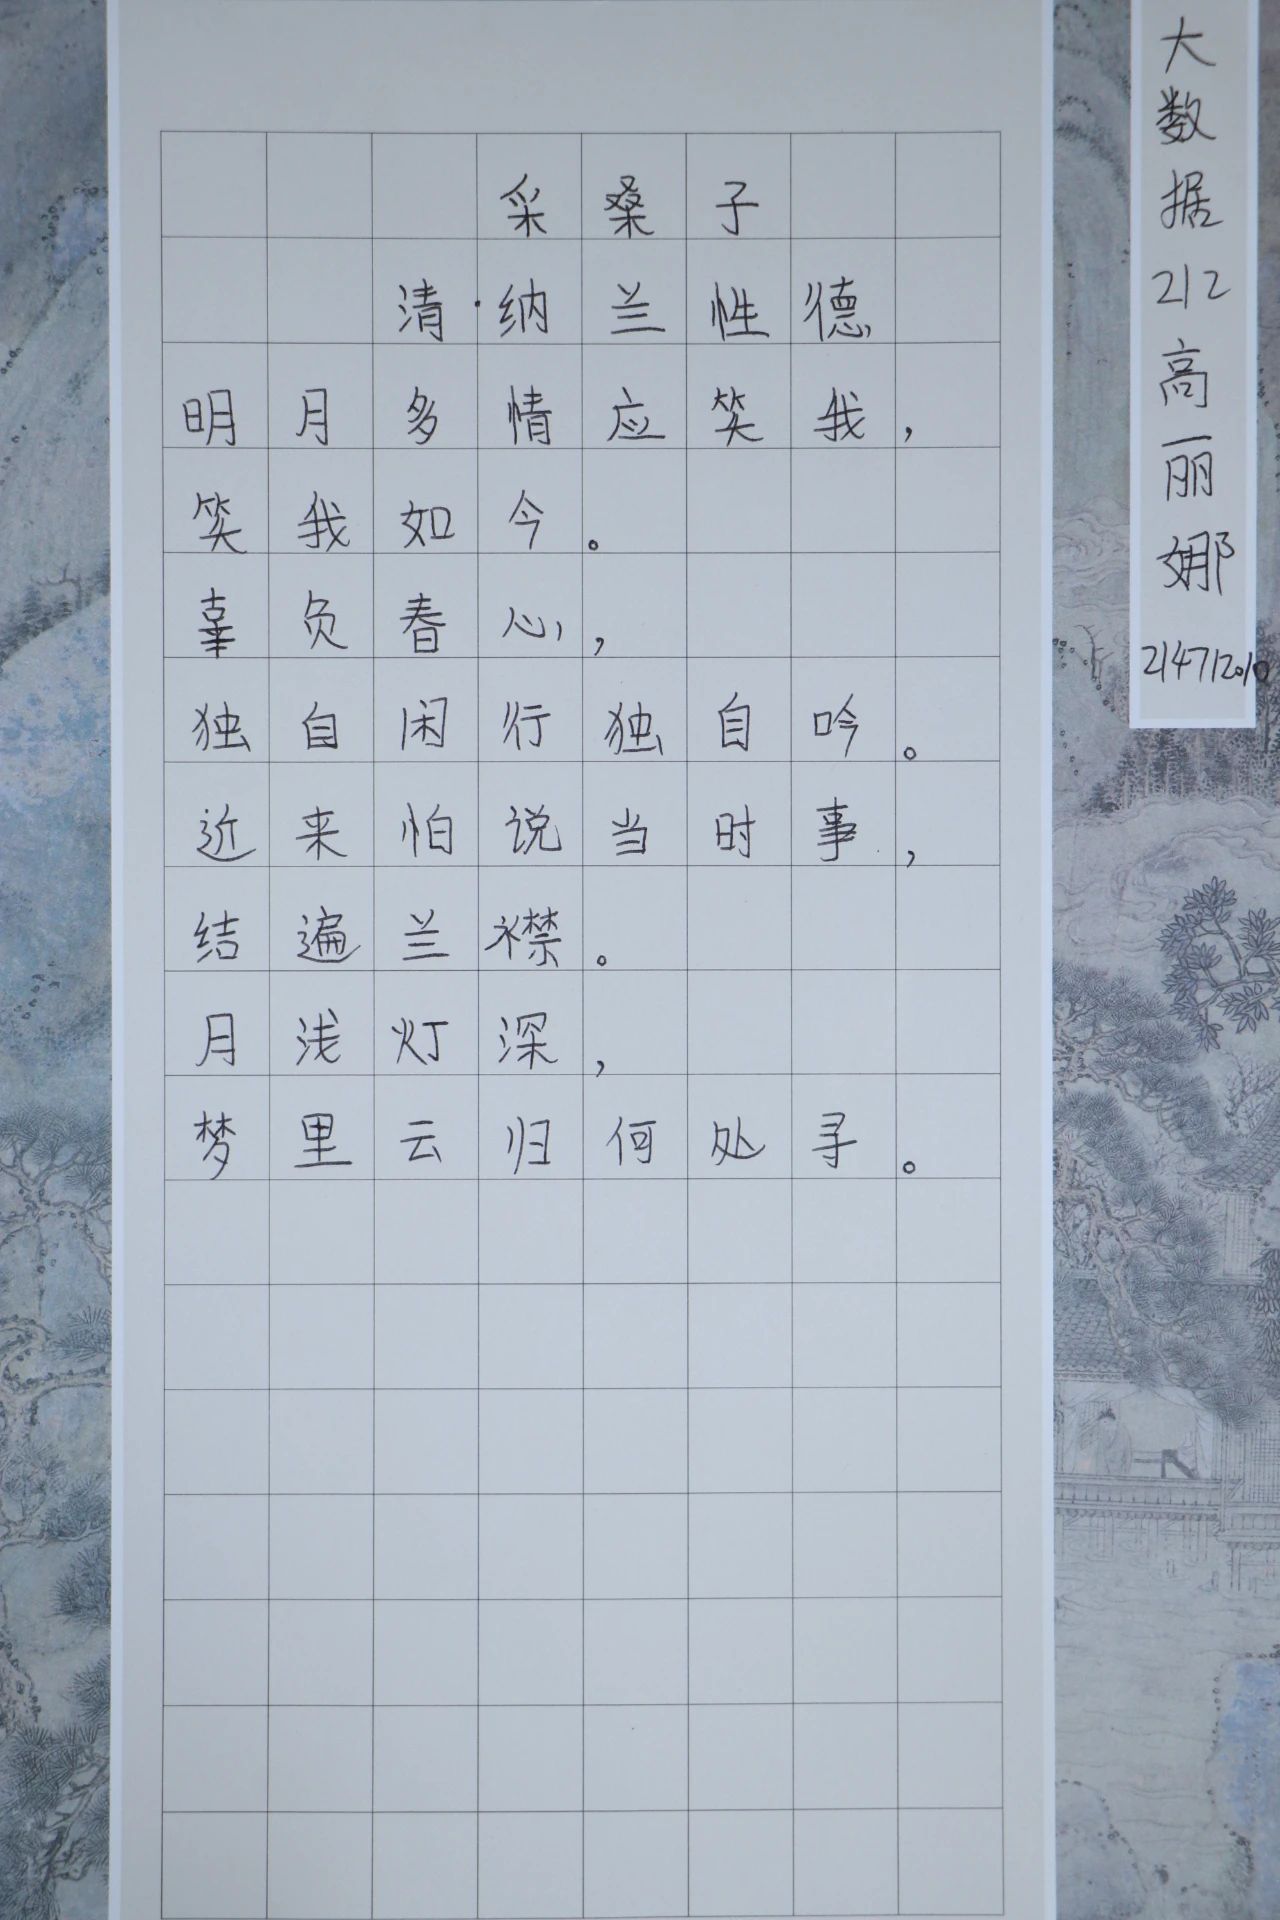 采桑子
清·纳兰性德
明月多情应笑我，
笑我如今。
辜负春心，
独自闲行独自吟。
近来怕说当时事，
结遍兰襟。
月浅灯深，
梦里云归何处寻。
大数据212高丽娜
214712010